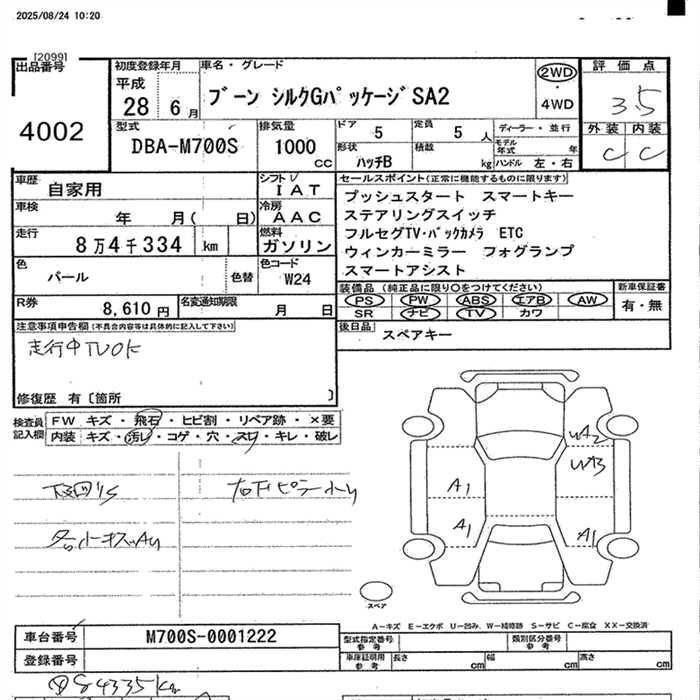 2025/08/24 10:20
[2099]
出品番号
4002
初度登録年月
平成
28 6月
車名・グレード
ブーン シルクGパッケージSA2
2WD
・
4WD
評価点
3.5
外装 内装
C C
型式
DBA-M700S
排気量
1000
cc
ドア 5
定員 5 人
形状 ハッチB
積載 kg
ディーラー・並行
モデル年式 年
ハンドル 左・右
車歴 自家用
シフト IAT
車検 年 月( 日)
冷房 AAC
走行 8万4千334 km
燃料 ガソリン
色 パール
色替
色コード W24
R券 8,610円
名変通知期限 月 日
セールスポイント(正常に機能するものに限ります)
プッシュスタート スマートキー
ステアリングスイッチ
フルセグTV・バックカメラ ETC
ウィンカーミラー フォグランプ
スマートアシスト
装備品 (純正品に限り○をつけてください)
PS PW ABS エアB AW
SR ナビ TV カワ
新車保証書
有・無
後日品 スペアキー
注意事項申告欄(不具合内容等は具体的に記入して下さい)
走行中TVOK
修復歴 有〔箇所 〕
検査員記入欄
FW キズ・飛石・ヒビ割・リペア跡・×要
内装 キズ・汚レ・コゲ・穴・スリ・キレ・破レ
下回りS
右下ピラー小U
各小キズAU
WA2
WB
A1
A1
A1
スペア
A-キズ E-エクボ U-凹み、W-補修跡 S-サビ C-腐食 XX-交換済
車台番号 M700S-0001222
登録番号
型式指定番号 参考
類別区分番号 参考
車庫証明用 参考
長さ cm
幅 cm
高さ cm
84335km